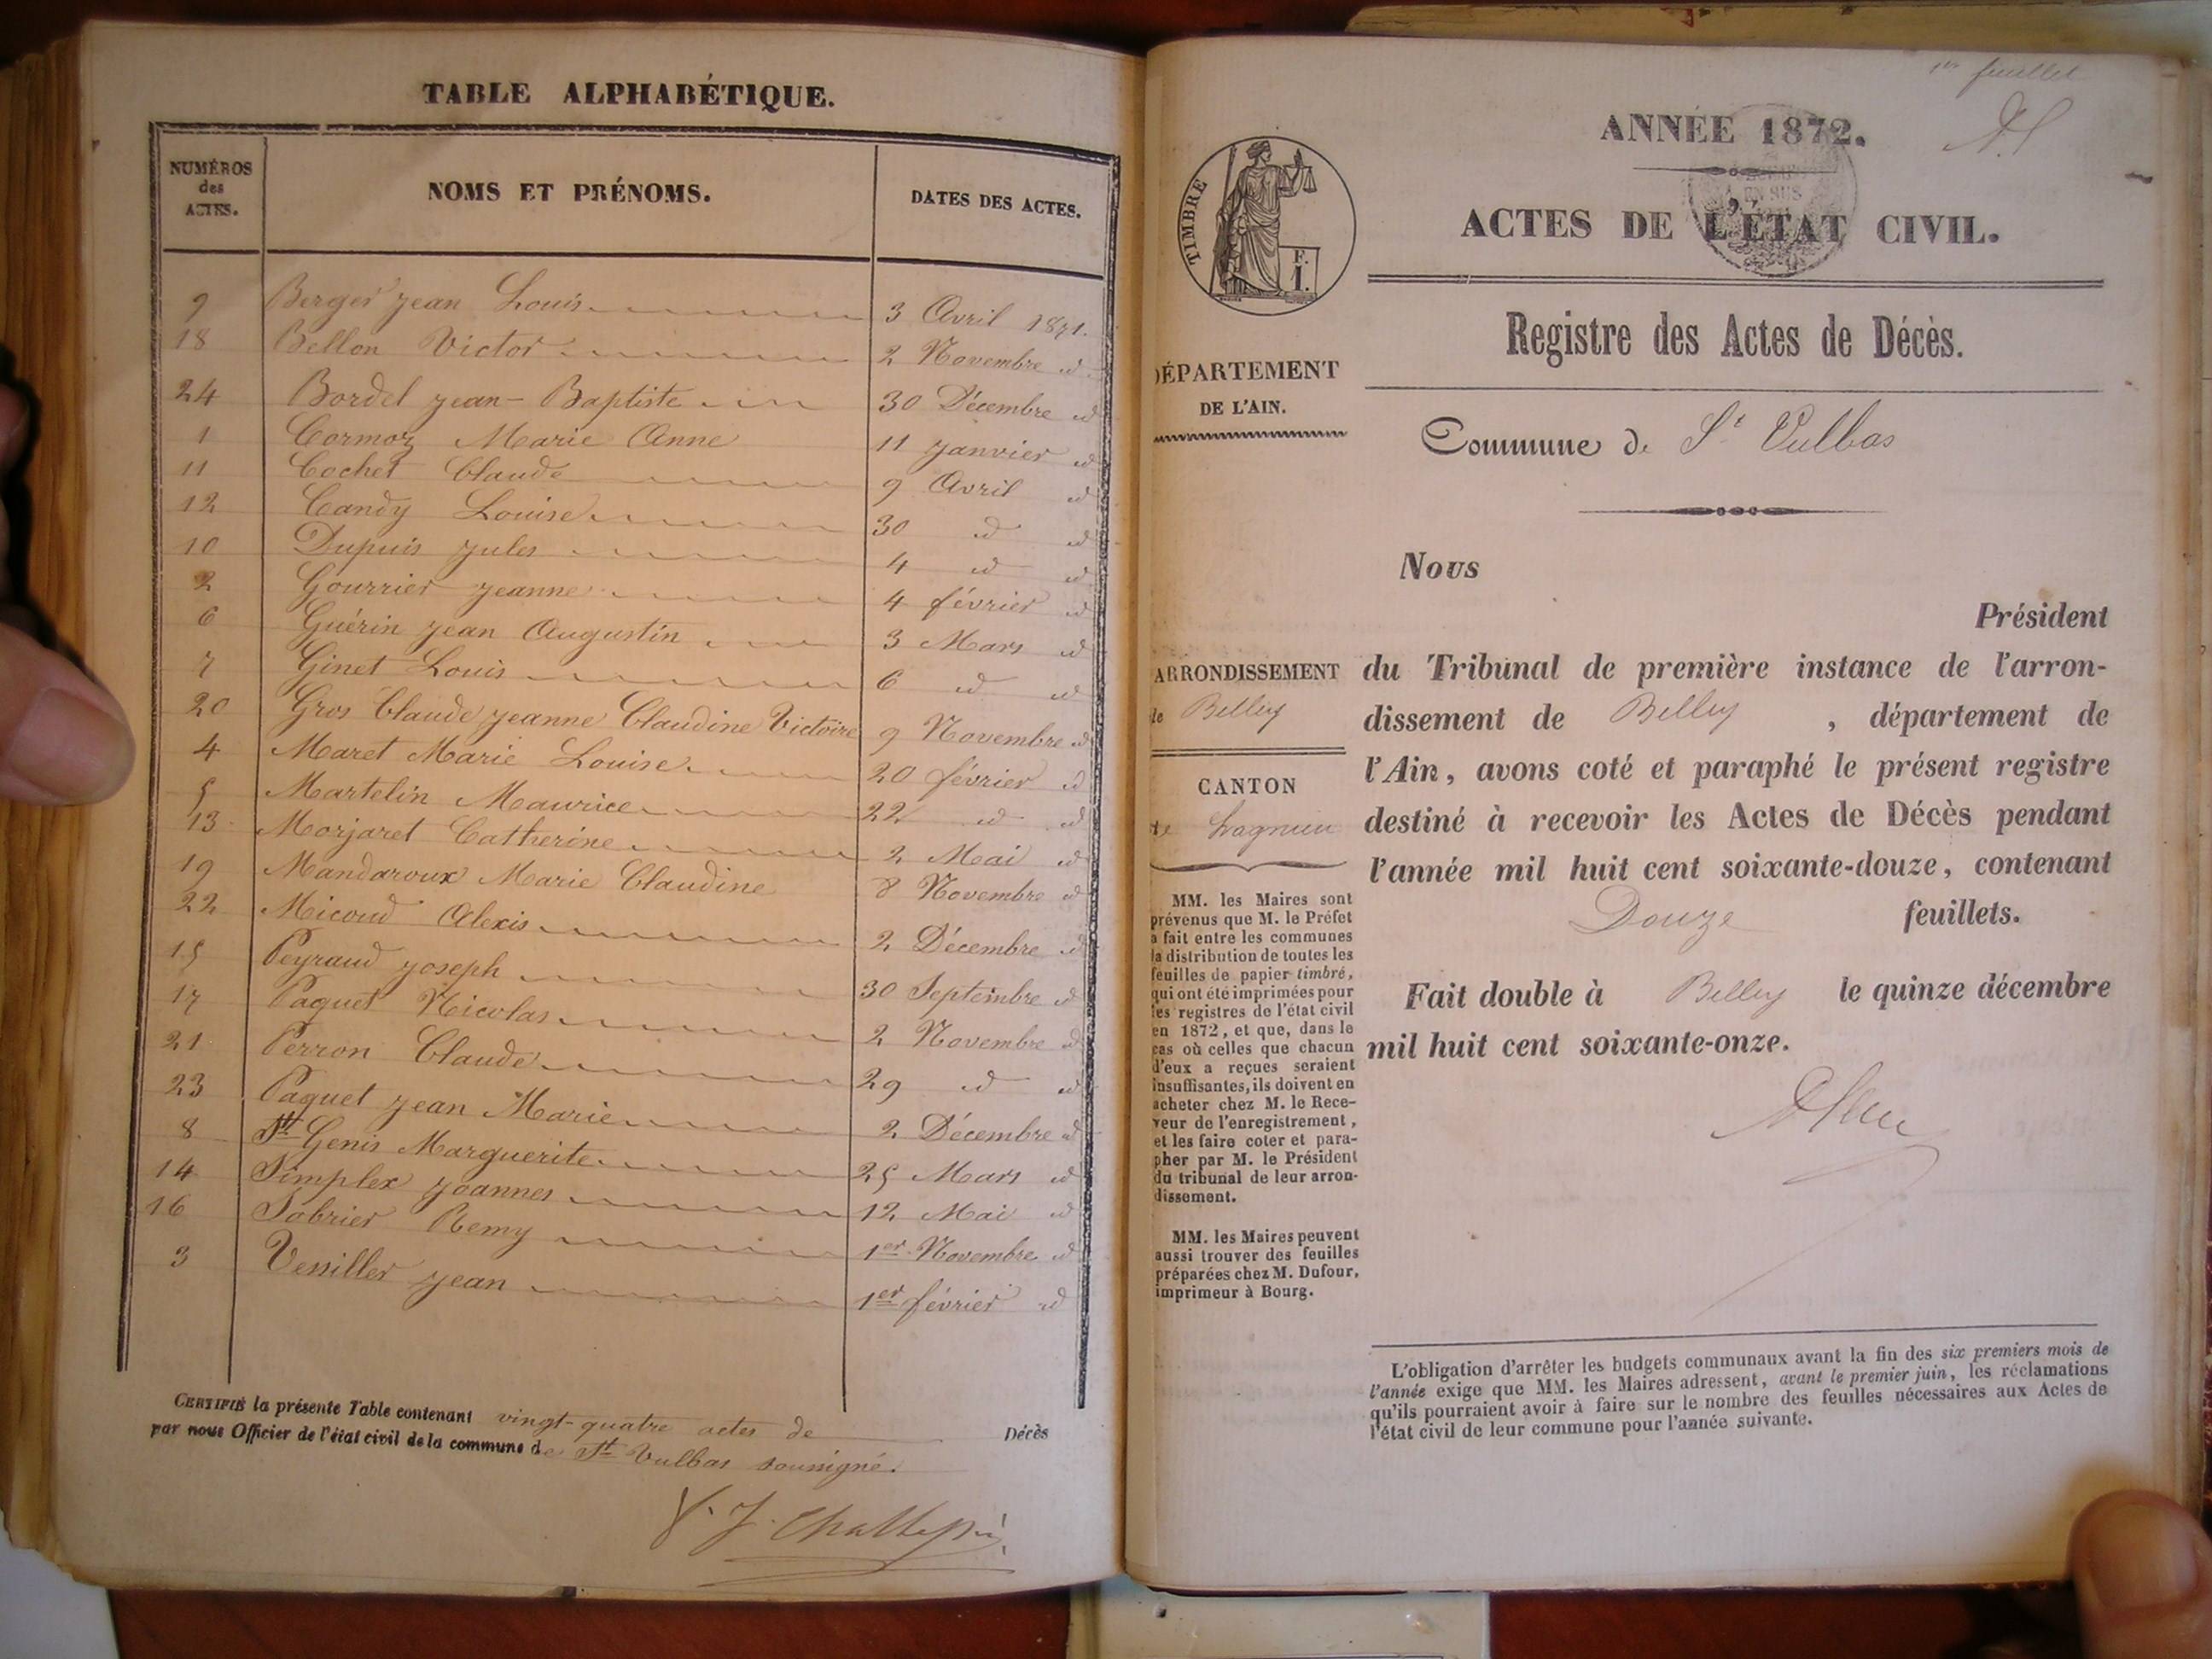 TABLE ALPHABÉTIQUE.
NUMÉROS
des
ACTES.
NOMS ET PRÉNOMS.
DATES DES ACTES.
9 Berger jean Louis 3 Avril 1871.
18 Bellon Victor 2 Novembre id
24 Bordel jean-Baptiste 30 Décembre id
1 Cormoz Marie Anne 11 janvier id
11 Cochet Claude 9 Avril id
12 Candy Louise 30 id id
10 Dupuis jules 4 id id
2 Gourrier jeanne 4 février id
6 Guérin jean Augustin 3 Mars id
7 Ginet Louis 6 id id
20 Gros Claude jeanne Claudine Victoire 9 Novembre id
4 Maret Marie Louise 20 février id
5 Martelin Maurice 22 id id
13 Morjaret Catherine 2 Mai id
19 Mandaroux Marie Claudine 8 Novembre id
22 Micoud Alexis 2 Décembre id
15 Peyraud joseph 30 Septembre id
17 Paquet Nicolas 2 Novembre id
21 Perron Claude 29 id id
23 Paquet jean Marie 2 Décembre id
8 St Genis Marguerite 25 Mars id
14 Simplex joannes 12 Mai id
16 Sobrier Remy 1er Novembre id
3 Vessiller jean 1er février id
CERTIFIÉ la présente Table contenant vingt-quatre actes de Décès
par nous Officier de l'état civil de la commune de St Vulbas soussigné.
1er feuillet
ANNÉE 1872.
ACTES DE L'ÉTAT CIVIL.
TIMBRE
F.
1.
Registre des Actes de Décès.
DÉPARTEMENT
DE L'AIN.
Commune de St Vulbas
Nous
Président
ARRONDISSEMENT
de Belley
CANTON
de Lagnieu
du Tribunal de première instance de l'arron-
dissement de Belley, département de
l'Ain, avons coté et paraphé le présent registre
destiné à recevoir les Actes de Décès pendant
l'année mil huit cent soixante-douze, contenant
Douze feuillets.
Fait double à Belley le quinze décembre
mil huit cent soixante-onze.
MM. les Maires sont
prévenus que M. le Préfet
a fait entre les communes
la distribution de toutes les
feuilles de papier timbré,
qui ont été imprimées pour
les registres de l'état civil
en 1872, et que, dans le
cas où celles que chacun
d'eux a reçues seraient
insuffisantes, ils doivent en
acheter chez M. le Rece-
veur de l'enregistrement,
et les faire coter et para-
pher par M. le Président
du tribunal de leur arron-
dissement.
MM. les Maires peuvent
aussi trouver des feuilles
préparées chez M. Dufour,
imprimeur à Bourg.
L'obligation d'arrêter les budgets communaux avant la fin des six premiers mois de
l'année exige que MM. les Maires adressent, avant le premier juin, les réclamations
qu'ils pourraient avoir à faire sur le nombre des feuilles nécessaires aux Actes de
l'état civil de leur commune pour l'année suivante.